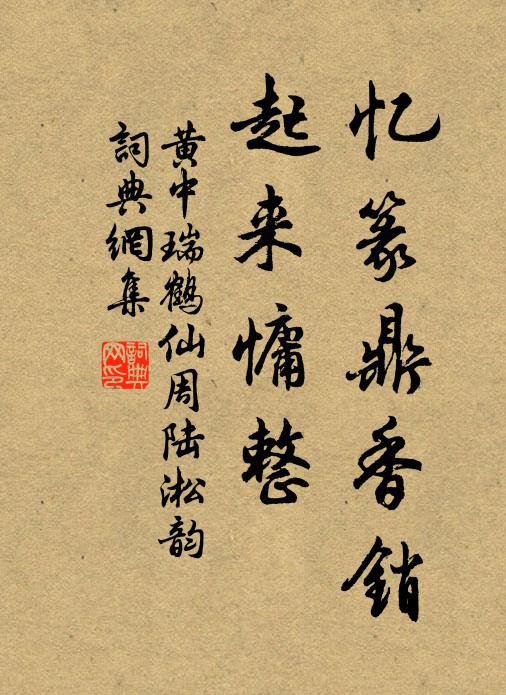 忆篆鼎香銷
起来慵整
黄中瑞鶴仙周陆淞韵
詞典網集
詞典网印